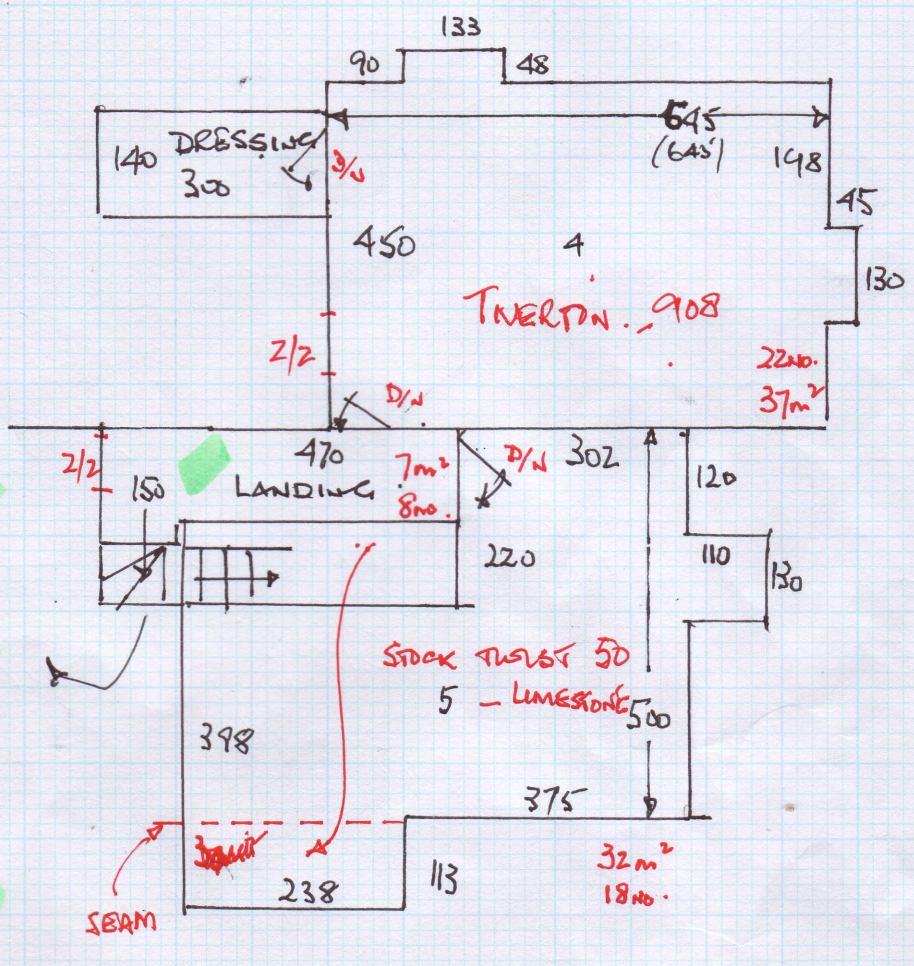 133
90
48
645
(645)
140
DRESSING
300
D/N
198
45
450
4
130
TIVERTON. 908
2/2
22NO.
37m²
D/N
470
302
2/2
150
LANDING
7m²
8NO.
D/N
120
220
110
130
STOCK TWIST 50
5 - LIMESTONE
500
398
375
238
113
32m²
18NO.
SEAM